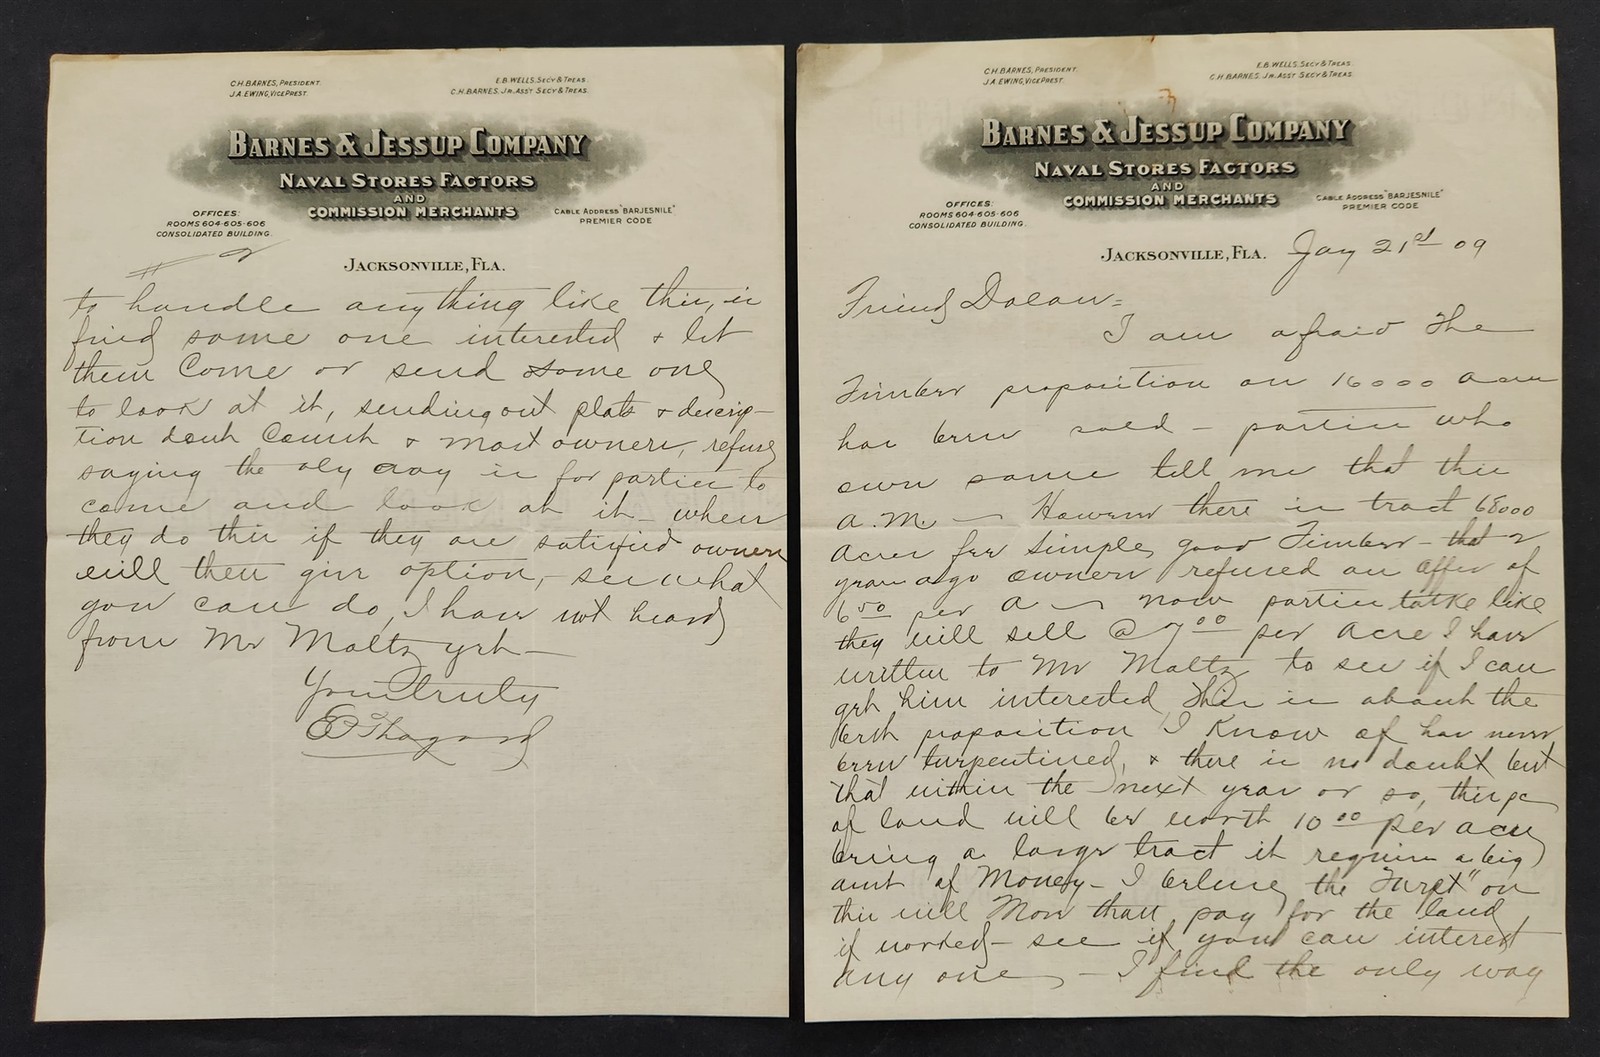 C.H. BARNES, PRESIDENT.
J.A. EWING, VICE PREST.
E.B. WELLS, SECY & TREAS.
C.H. BARNES, JR. ASST SECY & TREAS.
BARNES & JESSUP COMPANY
NAVAL STORES FACTORS
AND
COMMISSION MERCHANTS
OFFICES:
ROOMS 604-605-606
CONSOLIDATED BUILDING.
CABLE ADDRESS "BARJESNILE"
PREMIER CODE
JACKSONVILLE, FLA. Jany 21st 09
Friend Dolan=
I am afraid the
Timber proposition on 16000 acres
has been sold – parties who
own same tell me that this
a.M. — However there is tract 68000
acres fee simple, good Timber – that 2
years ago owners refused an offer of
6 50 per A — now parties talk like
they will sell @ 7 00 per acre I have
written to Mr Maltz to see if I can
get him interested, this is about the
best proposition I know of has never
been turpentined, & there is no doubt but
that within the next year or so, this pc
of land will be worth 10 00 per acre
being a large tract it requires a big
amt of Money – I believe the "Turpt" on
this will More than pay for the land
if worked – see if you can interest
any one, – I find the only way
C.H. BARNES, PRESIDENT.
J.A. EWING, VICE PREST.
E.B. WELLS, SECY & TREAS.
C.H. BARNES, JR. ASST SECY & TREAS.
BARNES & JESSUP COMPANY
NAVAL STORES FACTORS
AND
COMMISSION MERCHANTS
OFFICES:
ROOMS 604-605-606
CONSOLIDATED BUILDING.
CABLE ADDRESS "BARJESNILE"
PREMIER CODE
# 2
JACKSONVILLE, FLA.
to handle anything like this, is
find some one interested & let
them Come or send some one
to look at it, sending out plats & descrip-
tion dont Count & most owners, refuse
saying the oly way is for parties to
come and look at it – when
they do this if they are satisfied owners
will then give option, – see what
you can do, I have not heard
from Mr Maltz yet —
Yours truly
E P Thagard